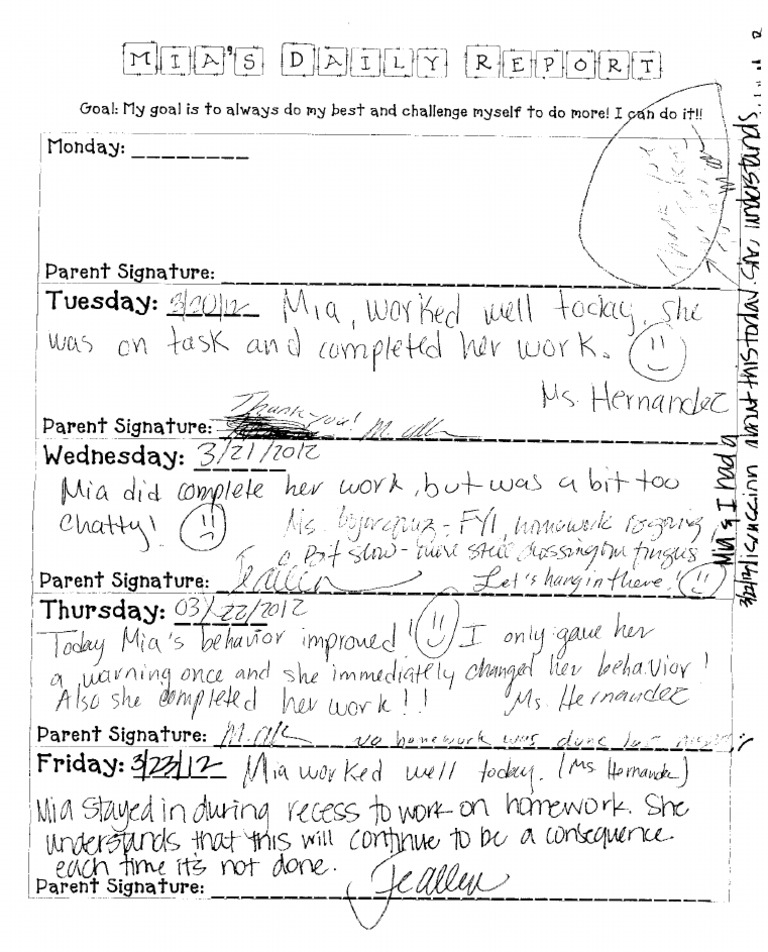 MIA'S DAILY REPORT
Goal: My goal is to always do my best and challenge myself to do more! I can do it!!
Monday: ________
Parent Signature:
Tuesday: 3/20/12 Mia, worked well today, she
was on task and completed her work.
Ms. Hernandez
Thank you!
Parent Signature: M. Allen
Wednesday: 3/21/2012
Mia did complete her work, but was a bit too
chatty!
Ms. - FYI, homework is going
a bit slow - we're still crossing our fingers
Parent Signature: Jc allen Let's hang in there!
Thursday: 03/22/2012
Today Mia's behavior improved! I only gave her
a warning once and she immediately changed her behavior!
Also she completed her work!! Ms. Hernandez
Parent Signature: M. Allen No homework was done last night :(
Friday: 3/23/12 Mia worked well today. (Ms. Hernandez)
Mia stayed in during recess to work on homework. She
understands that this will continue to be a consequence
each time it's not done.
Parent Signature: Jc allen
Mia & I had a
discussion about this today. She understands